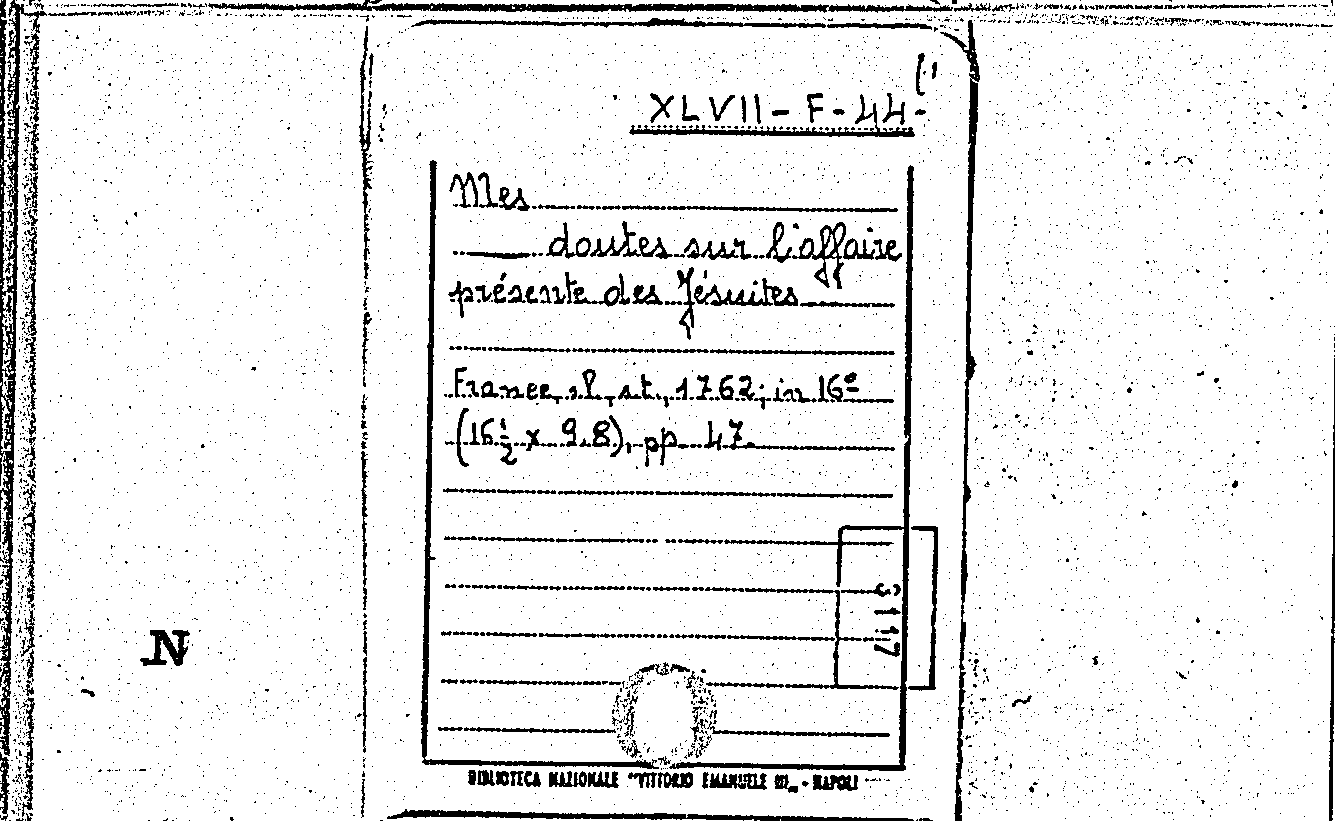 (1
XLVII - F - 44 -
Mes
doutes sur l'affaire
présente des Jésuites
France, s.l., s.t., 1762; in 16º
(16½ x 9.8), pp. 47.
3117
N
BIBLIOTECA NAZIONALE "VITTORIO EMANUELE III" - NAPOLI